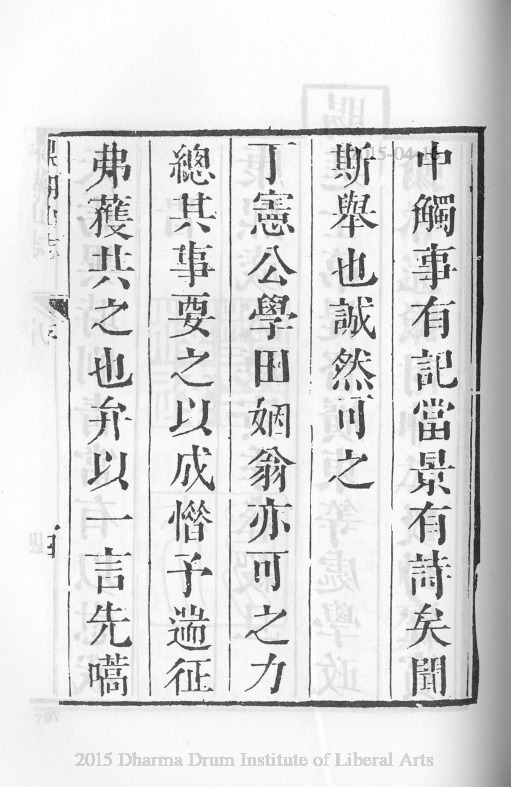 中觸事有記當景有詩矣聞
斯舉也誠然可之
丁憲公學田姻翁亦可之力
總其事要之以成惜予遄征
弗蒦共之也弁以一言先嚆
2015 Dharma Drum Institute of Liberal Arts